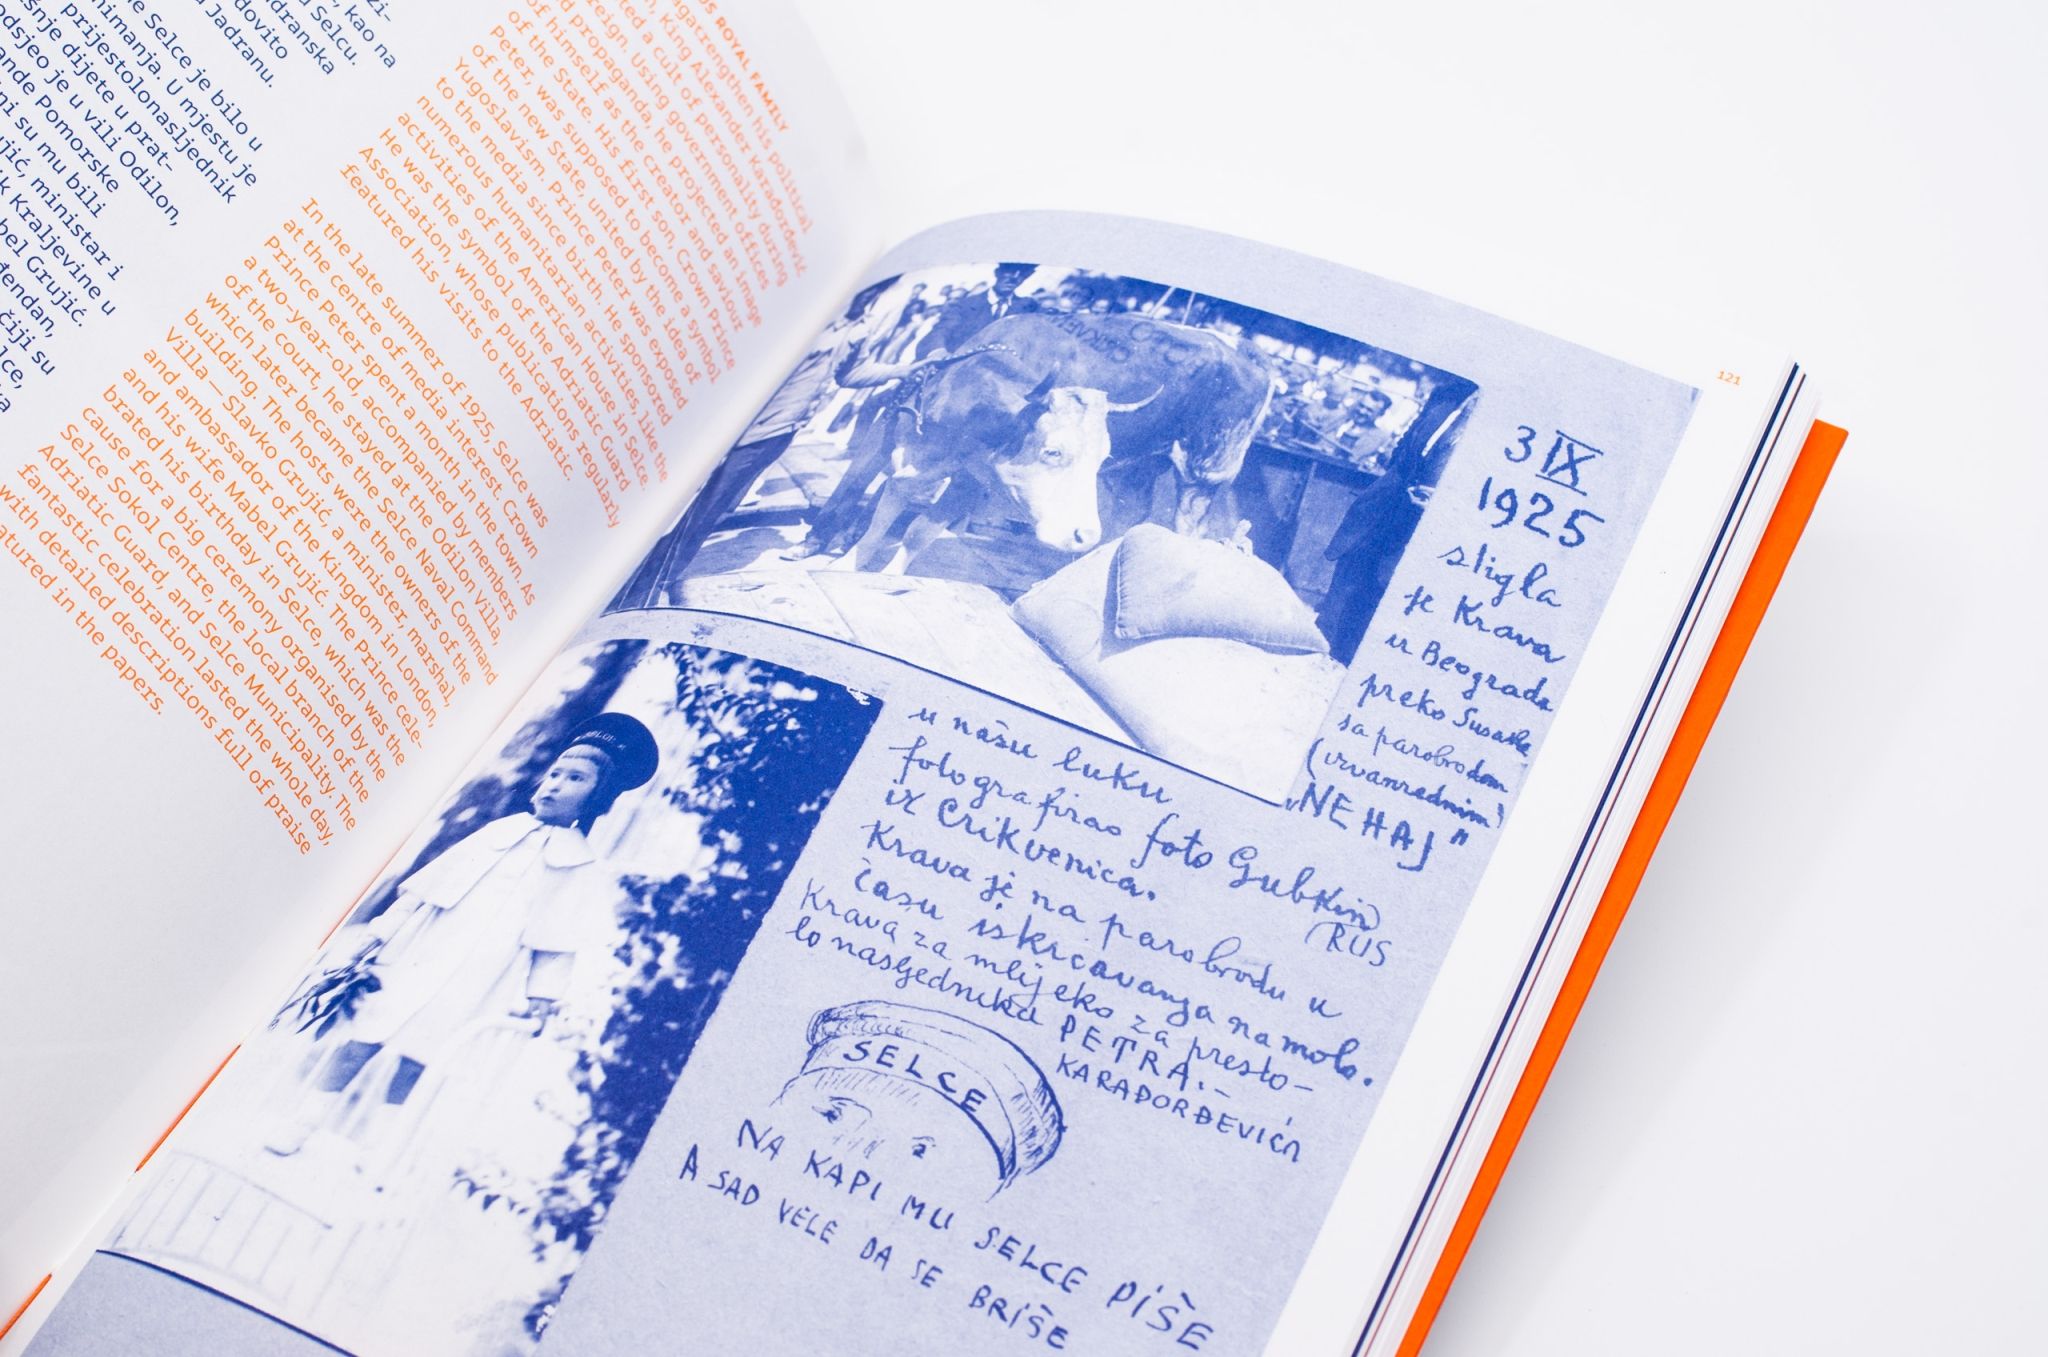 zi-
, kao na
Selcu.
dranska
dovito
Jadranu.
e Selce je bilo u
nimanja. U mjestu je
prijestolonasljednik
šnje dijete u prat-
odsjeo je u vili Odilon,
ande Pomorske
ni su mu bili
ujić, ministar i
k Kraljevine u
bel Grujić.
đendan,
čiji su
lce,
ROYAL FAMILY
strengthen his political
King Alexander Karađorđević
a cult of personality during
reign. Using government offices
d propaganda, he projected an image
of himself as the creator and saviour
of the State. His first son, Crown Prince
Peter, was supposed to become a symbol
of the new State, united by the idea of
Yugoslavism. Prince Peter was exposed
to the media since birth. He sponsored
numerous humanitarian activities, like the
activities of the American House in Selce.
He was the symbol of the Adriatic Guard
Association, whose publications regularly
featured his visits to the Adriatic.
In the late summer of 1925, Selce was
at the centre of media interest. Crown
Prince Peter spent a month in the town. As
a two-year-old, accompanied by members
of the court, he stayed at the Odilon Villa,
which later became the Selce Naval Command
building. The hosts were the owners of the
Villa—Slavko Grujić, a minister, marshal,
and ambassador of the Kingdom in London,
and his wife Mabel Grujić. The Prince cele-
brated his birthday in Selce, which was the
cause for a big ceremony organised by the
Selce Sokol Centre, the local branch of the
Adriatic Guard, and Selce Municipality. The
fantastic celebration lasted the whole day,
with detailed descriptions full of praise
atured in the papers.
121
3 IX
1925
stigla
je Krava
iz Beograda
preko Sušaka
sa parobrodom
(izvanrednim)
„NEHAJ"
u našu luku
fotografirao foto Gubkin
RUS
iz Crikvenica.
Krava je na parobrodu u
času iskrcavanja na molo.
Krava za mlijeko za presto-
lonasljednika PETRA.-
KARAĐORĐEVIĆA
SELCE
NA KAPI MU SELCE PIŠE
A SAD VELE DA SE BRIŠE